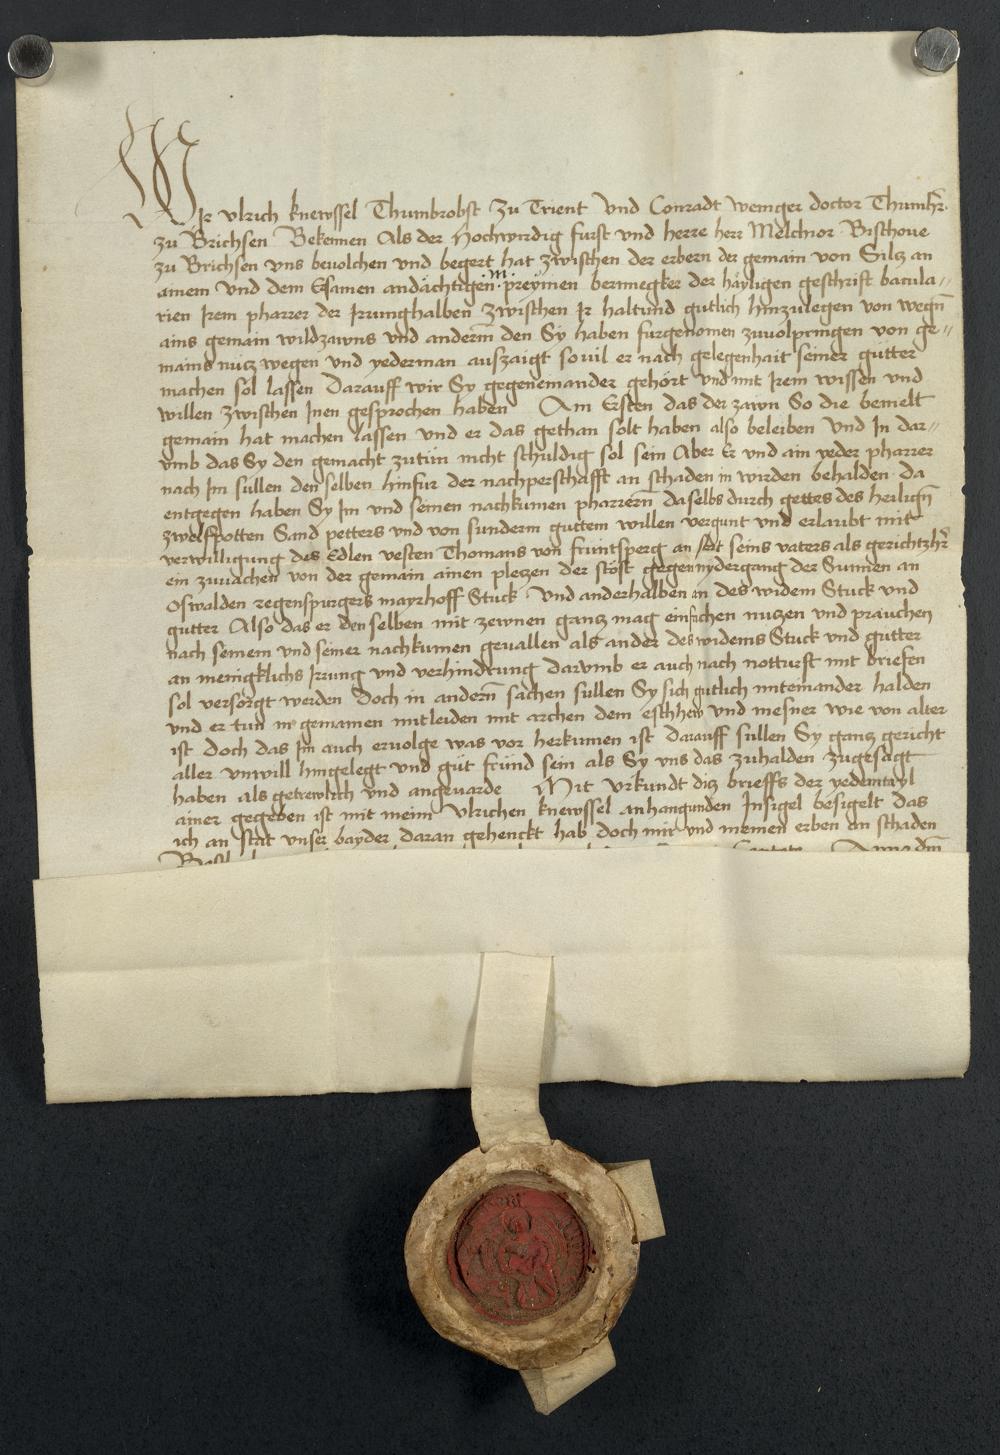 Wir vlrich knewssel Thumbrobst zu Trient vnd Conradt Wenger doctor Thumhr̄
zu Brichsen Bekennen Als der Hochwirdig furst vnd herre herr Melchior Bischoue
zu Brichsen vns beuolchen vnd begert hat zwischen der erbern der gemain von Silz an
ainem vnd dem Ersamen andächtigen M preymen bermegker der häyligen geschrift bacula//
rien Irem pharrer der Irrunghalben zwischen Ir haltund gutlich hinzulegen von wegn̄
ains gemain wildzawns vnd anderm̄ den Sy haben furgenomen zuuolpringen von ge//
mains nutz wegen vnd yederman auszaigt souil er nach gelegenhait seiner gutter
machen sol lassen Darauff wir Sy gegeneinander gehört vnd mit Irem wissen vnd
willen zwischen Inen gesprochen haben Am Ersten das der zawn So die bemelt
gemain hat machen lassen vnd er das gethan solt haben also beleiben vnd In dar//
vmb das Sy den gemacht zutun nicht schuldig sol sein Aber Er vnd ain yeder pharrer
nach Im sullen den selben hinfur der nachperschafft an schaden in wirden behalden da
entgegen haben Sy Im vnd seinen nachkumen pharrern̄ daselbs durch gottes des heilign̄
zwelfpotten Sand petters vnd von sunderm guttem willen vergunt vnd erlaubt mit
verwilligung des Edlen vesten Thomans von fruntsperg an stat seins vaters als gerichtzhr̄
ein zuuachen von der gemain ainen pletzen der stöst gegen nydergang der Sunnen an
Oswalden regenspurgers mayrhoff Stuck vnd anderhalben an des widem Stuck vnd
gutter Also das er den selben mit zewnen gantz mag einfachen nutzen vnd prauchen
nach seinem vnd seiner nachkumen geuallen als ander des widems Stuck vnd gutter
an meinigklichs Irrung vnd verhindrung darvmb er auch nach notturft mit briefen
sol versorgt werden Doch in andern̄ sachen sullen Sy sich gutlich miteinander halden
vnd er tun in gemainen mitleiden mit archen dem eschhew vnd mesner wie von alter
ist doch das Im auch eruolge was vor herkumen ist darauff sullen Sy gantz gericht
aller vnwill hingelegt vnd gut frund sein als Sy vns das zuhalden zugesagt
haben als getrewlich vnd angeuarde Mit vrkundt ditz brieffs der yedemtayl
ainer gegeben ist mit meim vlrichen knewssel anhangunden Insigel besigelt das
ich an stat vnser bayder daran gehenckt hab doch mir vnd meinen erben an schaden
Anno dm̄